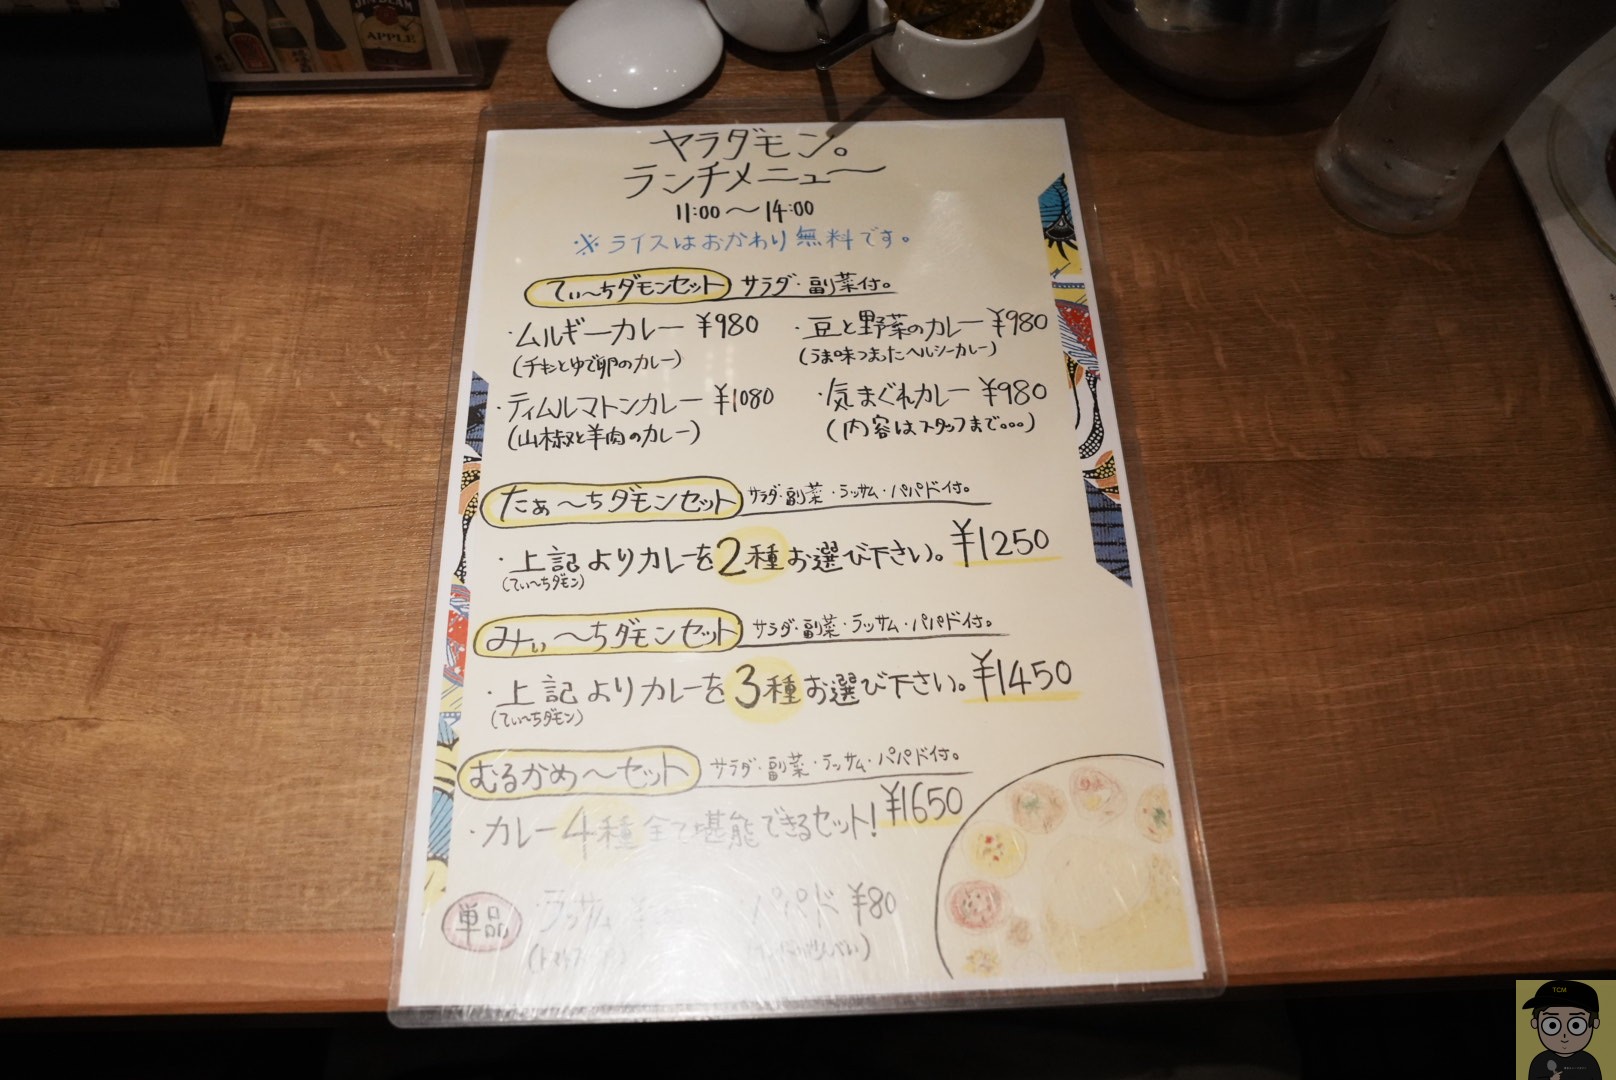 JIM BEAM
APPLE
ヤラダモン。
ランチメニュー
11:00〜14:00
※ライスはおかわり無料です。
てぃ〜ちダモンセット サラダ・副菜付。
・ムルギーカレー ¥980
(チキンとゆで卵のカレー)
・豆と野菜のカレー ¥980
(うま味つまったヘルシーカレー)
・ティムルマトンカレー ¥1080
(山椒と羊肉のカレー)
・気まぐれカレー ¥980
(内容はスタッフまで。。。)
たぁ〜ちダモンセット サラダ・副菜・ラッサム・パパド付。
・上記よりカレーを2種お選び下さい。 ¥1250
(てぃ〜ちダモン)
みぃ〜ちダモンセット サラダ・副菜・ラッサム・パパド付。
・上記よりカレーを3種お選び下さい。 ¥1450
(てぃ〜ちダモン)
むるかめ〜セット サラダ・副菜・ラッサム・パパド付。
・カレー4種全て堪能できるセット! ¥1650
単品 ・ラッサム ¥
・パパド ¥80
TCM